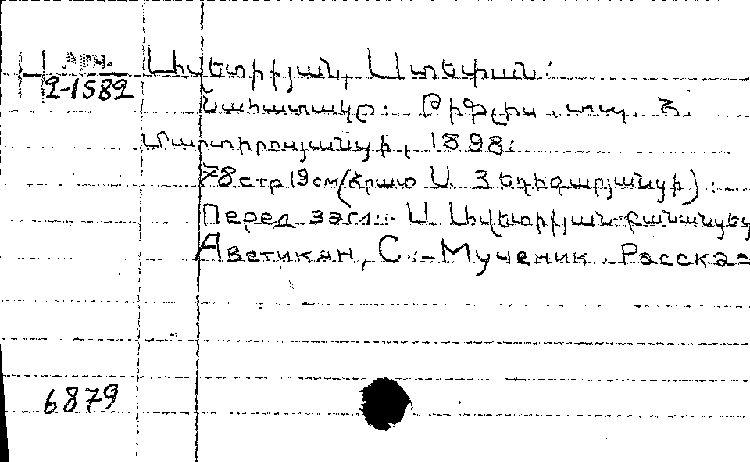 Арм.
2-1589
Ավետիքյան, Ստեփան։
Նահատակը։ Թիֆլիս, տպ. Յ.
Մարտիրոսյանցի, 1898։
78 стр 19 см (հրատ Ս. Յեղիզարյանցի)։
Перед загл.:- Ս Ավետիքյան-քանանցեց
Аветикян, С.:- Мученик. Расска-
6879